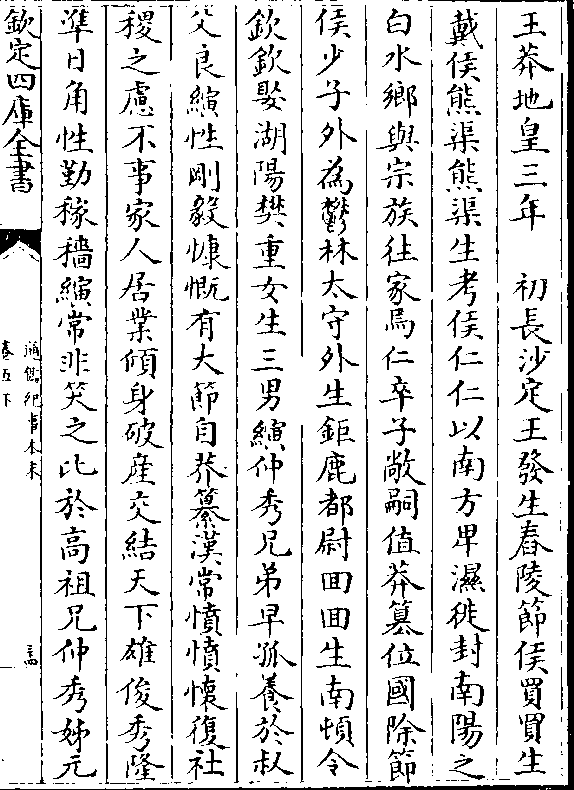 王莽地皇三年　初長沙定王發生舂陵節侯買買生
戴侯熊渠熊渠生考侯仁仁以南方卑濕徙封南陽之
白水鄉與宗族徃家焉仁卒子敞嗣值莽簒位國除節
侯少子外為鬱林太守外生鉅鹿都尉囬囬生南頓令
欽欽娶湖陽樊重女生三男縯仲秀兄弟早孤養於叔
父良縯性剛毅慷慨有大節自莽簒漢常憤憤懷復社
稷之慮不事家人居業傾身破産交結天下雄俊秀隆
準日角性勤稼穡縯常非笑之比於高祖兄仲秀姊元
欽定四庫全書
通鑑紀事本末
卷五下